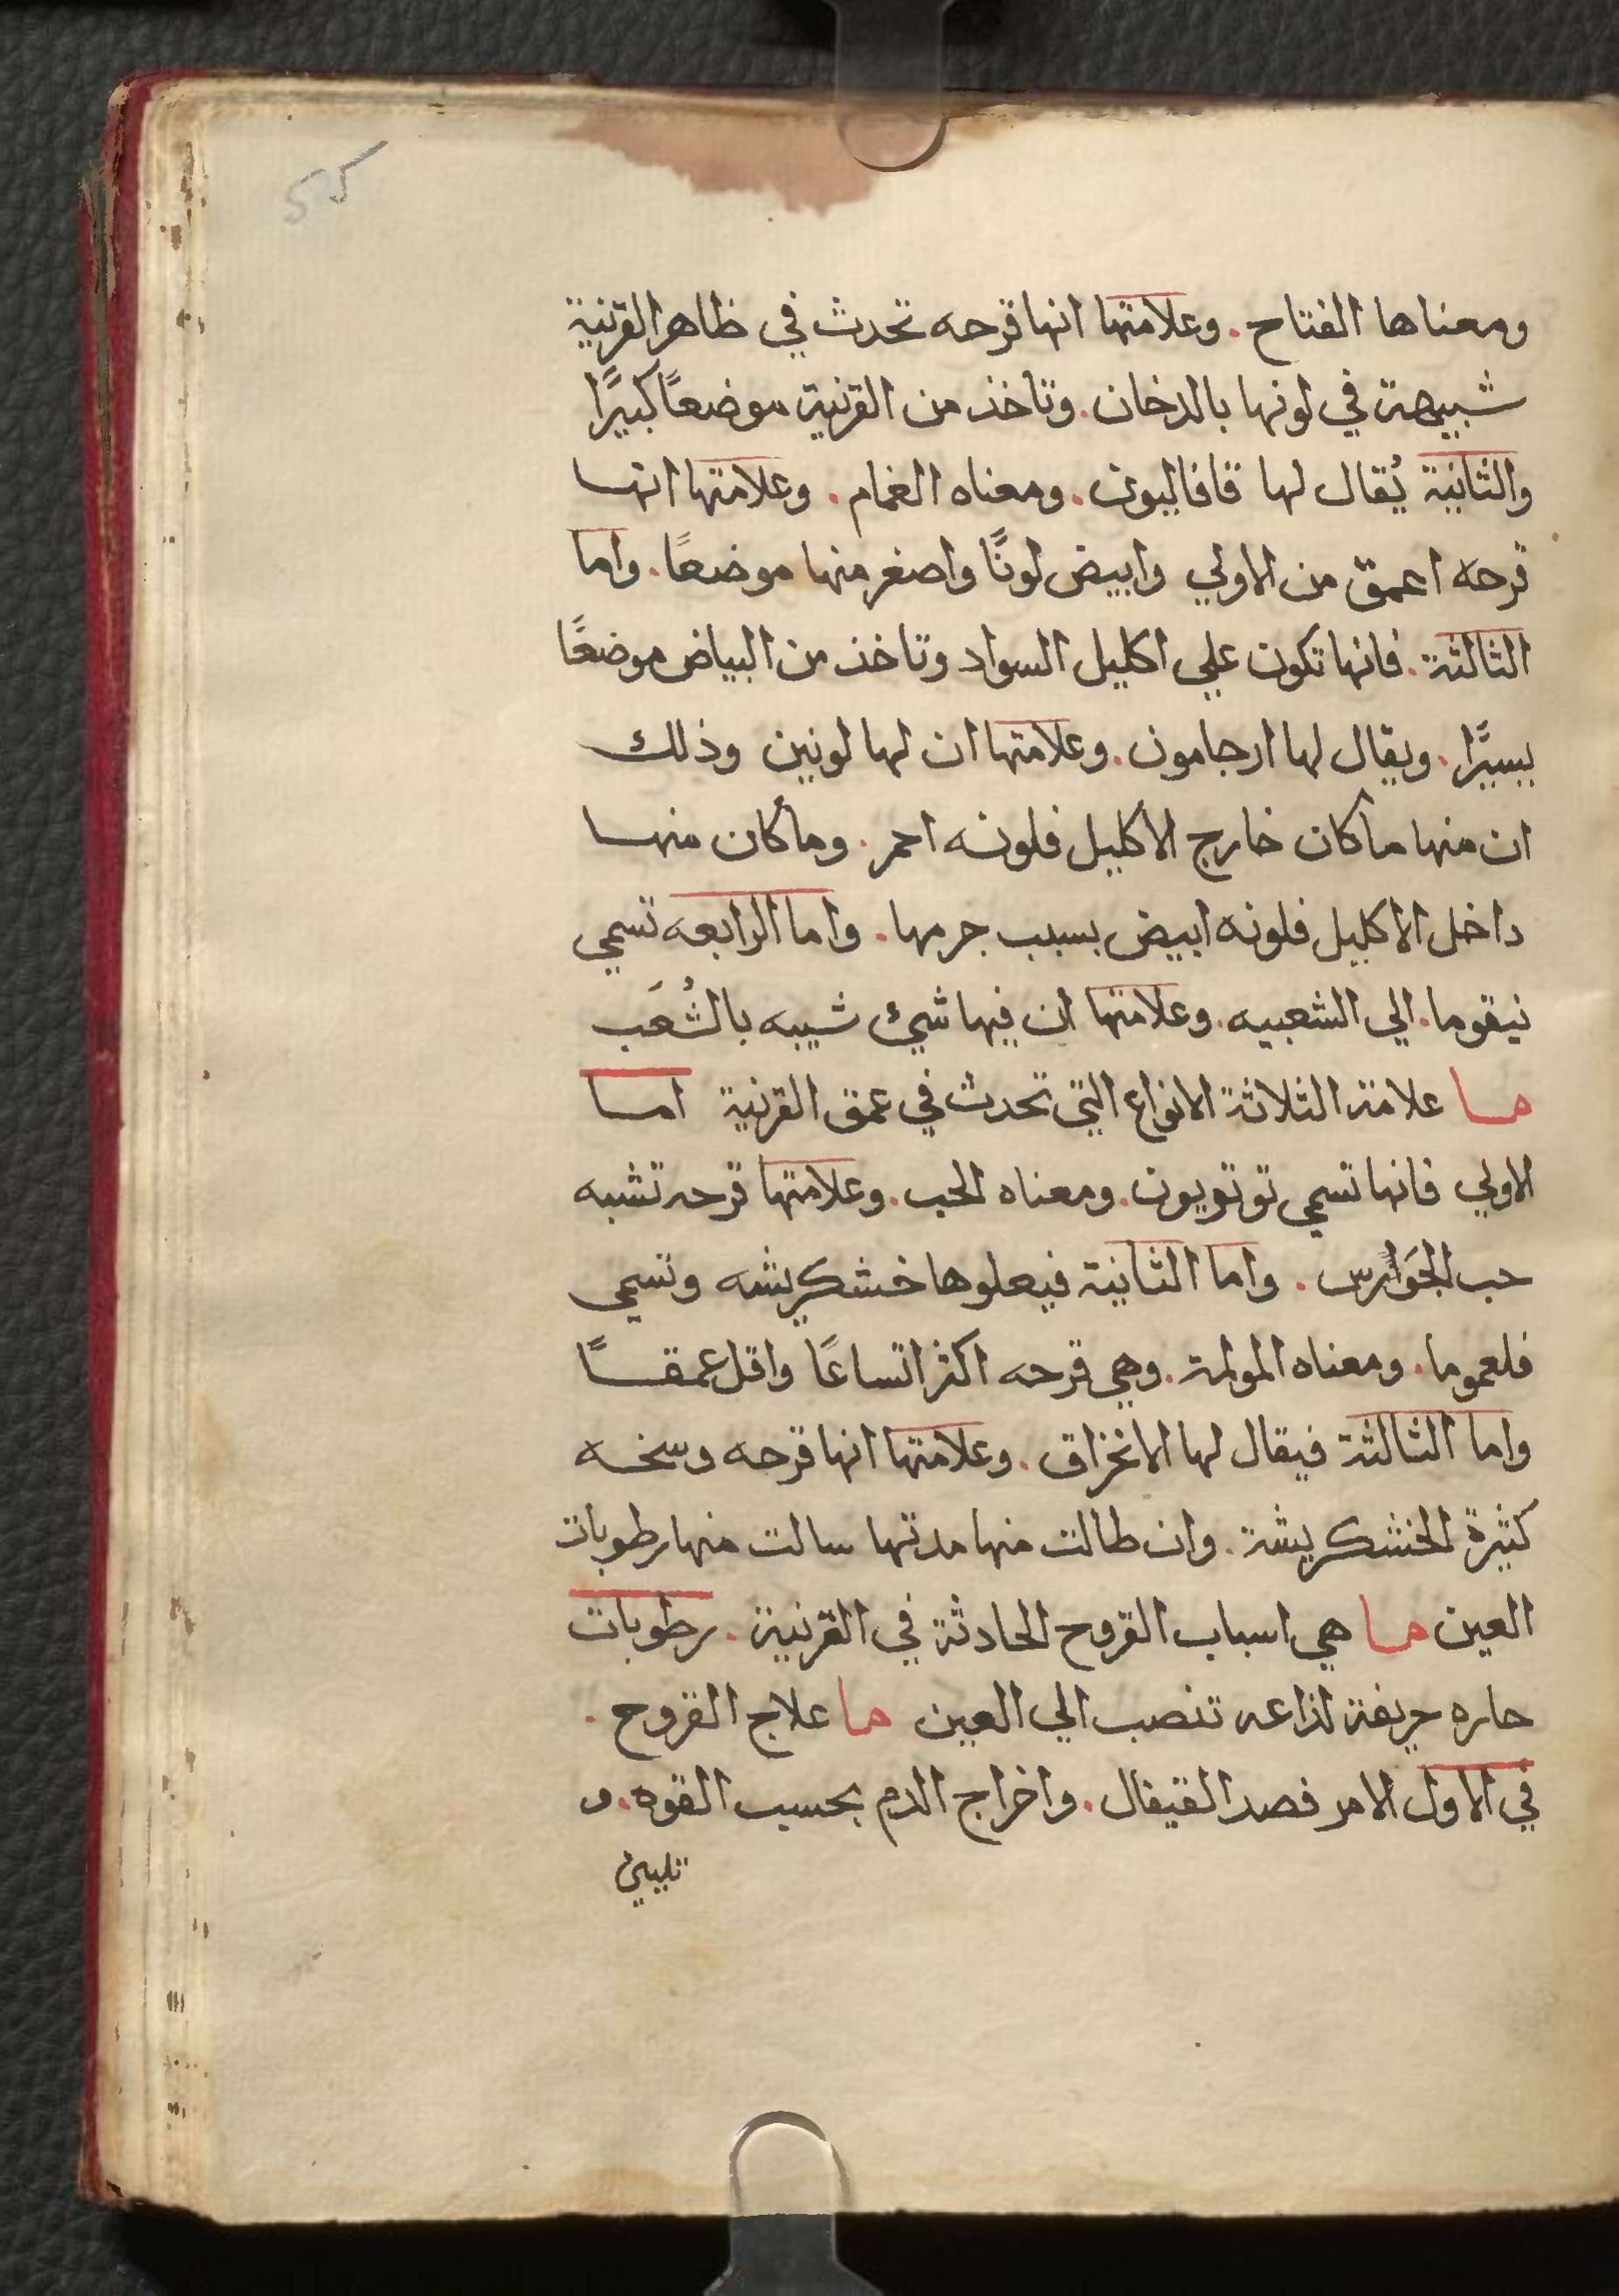 55
ومعناها الفتاح. وعلامتها انها قرحه تحدث في ظاهر القرنية
شبيهة في لونها بالدخان. وتاخذ من القرنية موضعًا كبيرًا
والثانية يُقال لها قافاليون. ومعناه الغمام. وعلامتها انها
قرحه اعمق من الاولي وابيض لونًا واصغر منها موضعًا. واما
الثالثة. فانها تكون علي اكليل السواد وتاخذ من البياض موضعًا
يسيرًا. ويقال لها ارجامون. وعلامتها ان لها لونين وذلك
ان منها ماكان خارج الاكليل فلونه احمر. وماكان منها
داخل الاكليل فلونه ابيض بسبب جرمها. واما الرابعه تسمي
نيقوما. الي الشعبيه. وعلامتها ان فيها شيئ شبيه بالشُعَب
ما علامة الثلاثة الانواع التي تحدث في عمق القرنية اما
الاولي فانها تسمي توتويون. ومعناه الحب. وعلامتها قرحه تشبه
حب الجَوارس. واما الثانية فيعلوها خشكريشه وتسمي
فلعموما. ومعناه المولمة. وهي قرحه اكثر اتساعًا واقل عمقًا
واما الثالثة فيقال لها الانخراق. وعلامتها انها قرحه وسخه
كثيرة الخشكريشة. وان طالت منها مدتها سالت منها رطوبات
العين ما هي اسباب القروح الحادثة في القرنية. رطوبات
حاره حريفة لذاعه تنصب الي العين ما علاج القروح.
في الاول الامر فصد القيفال. واخراج الدم بحسب القوه. و